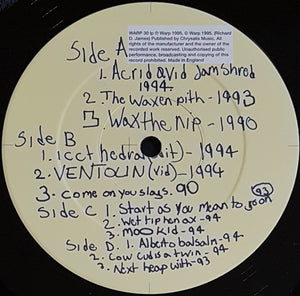 WARP 30 lp ℗ Warp 1995, © Warp 1995, [Richard
D. James] Published by Chrysalis Music. All
rights of the manufacturer and the owner of the
recorded work reserved. Unauthorised public
performance, broadcasting and copying of this
record prohibited. Made in England
Side A
1. Acrid avid Jam Shred
1994.
2. The Waxen pith - 1993
3 Wax the Nip - 1990
Side B
1. icct hedral (edit) - 1994
2. VENTOLIN (vid) - 1994
3. come on you slags. 90
Side C 1. Start as You mean to go on
93
2. Wet tip hen ax - 94
3. Mookid - 94
Side D. 1. Alberto balsalm - 94
2. Cow cud is a twin - 94
3. Next heap with - 93